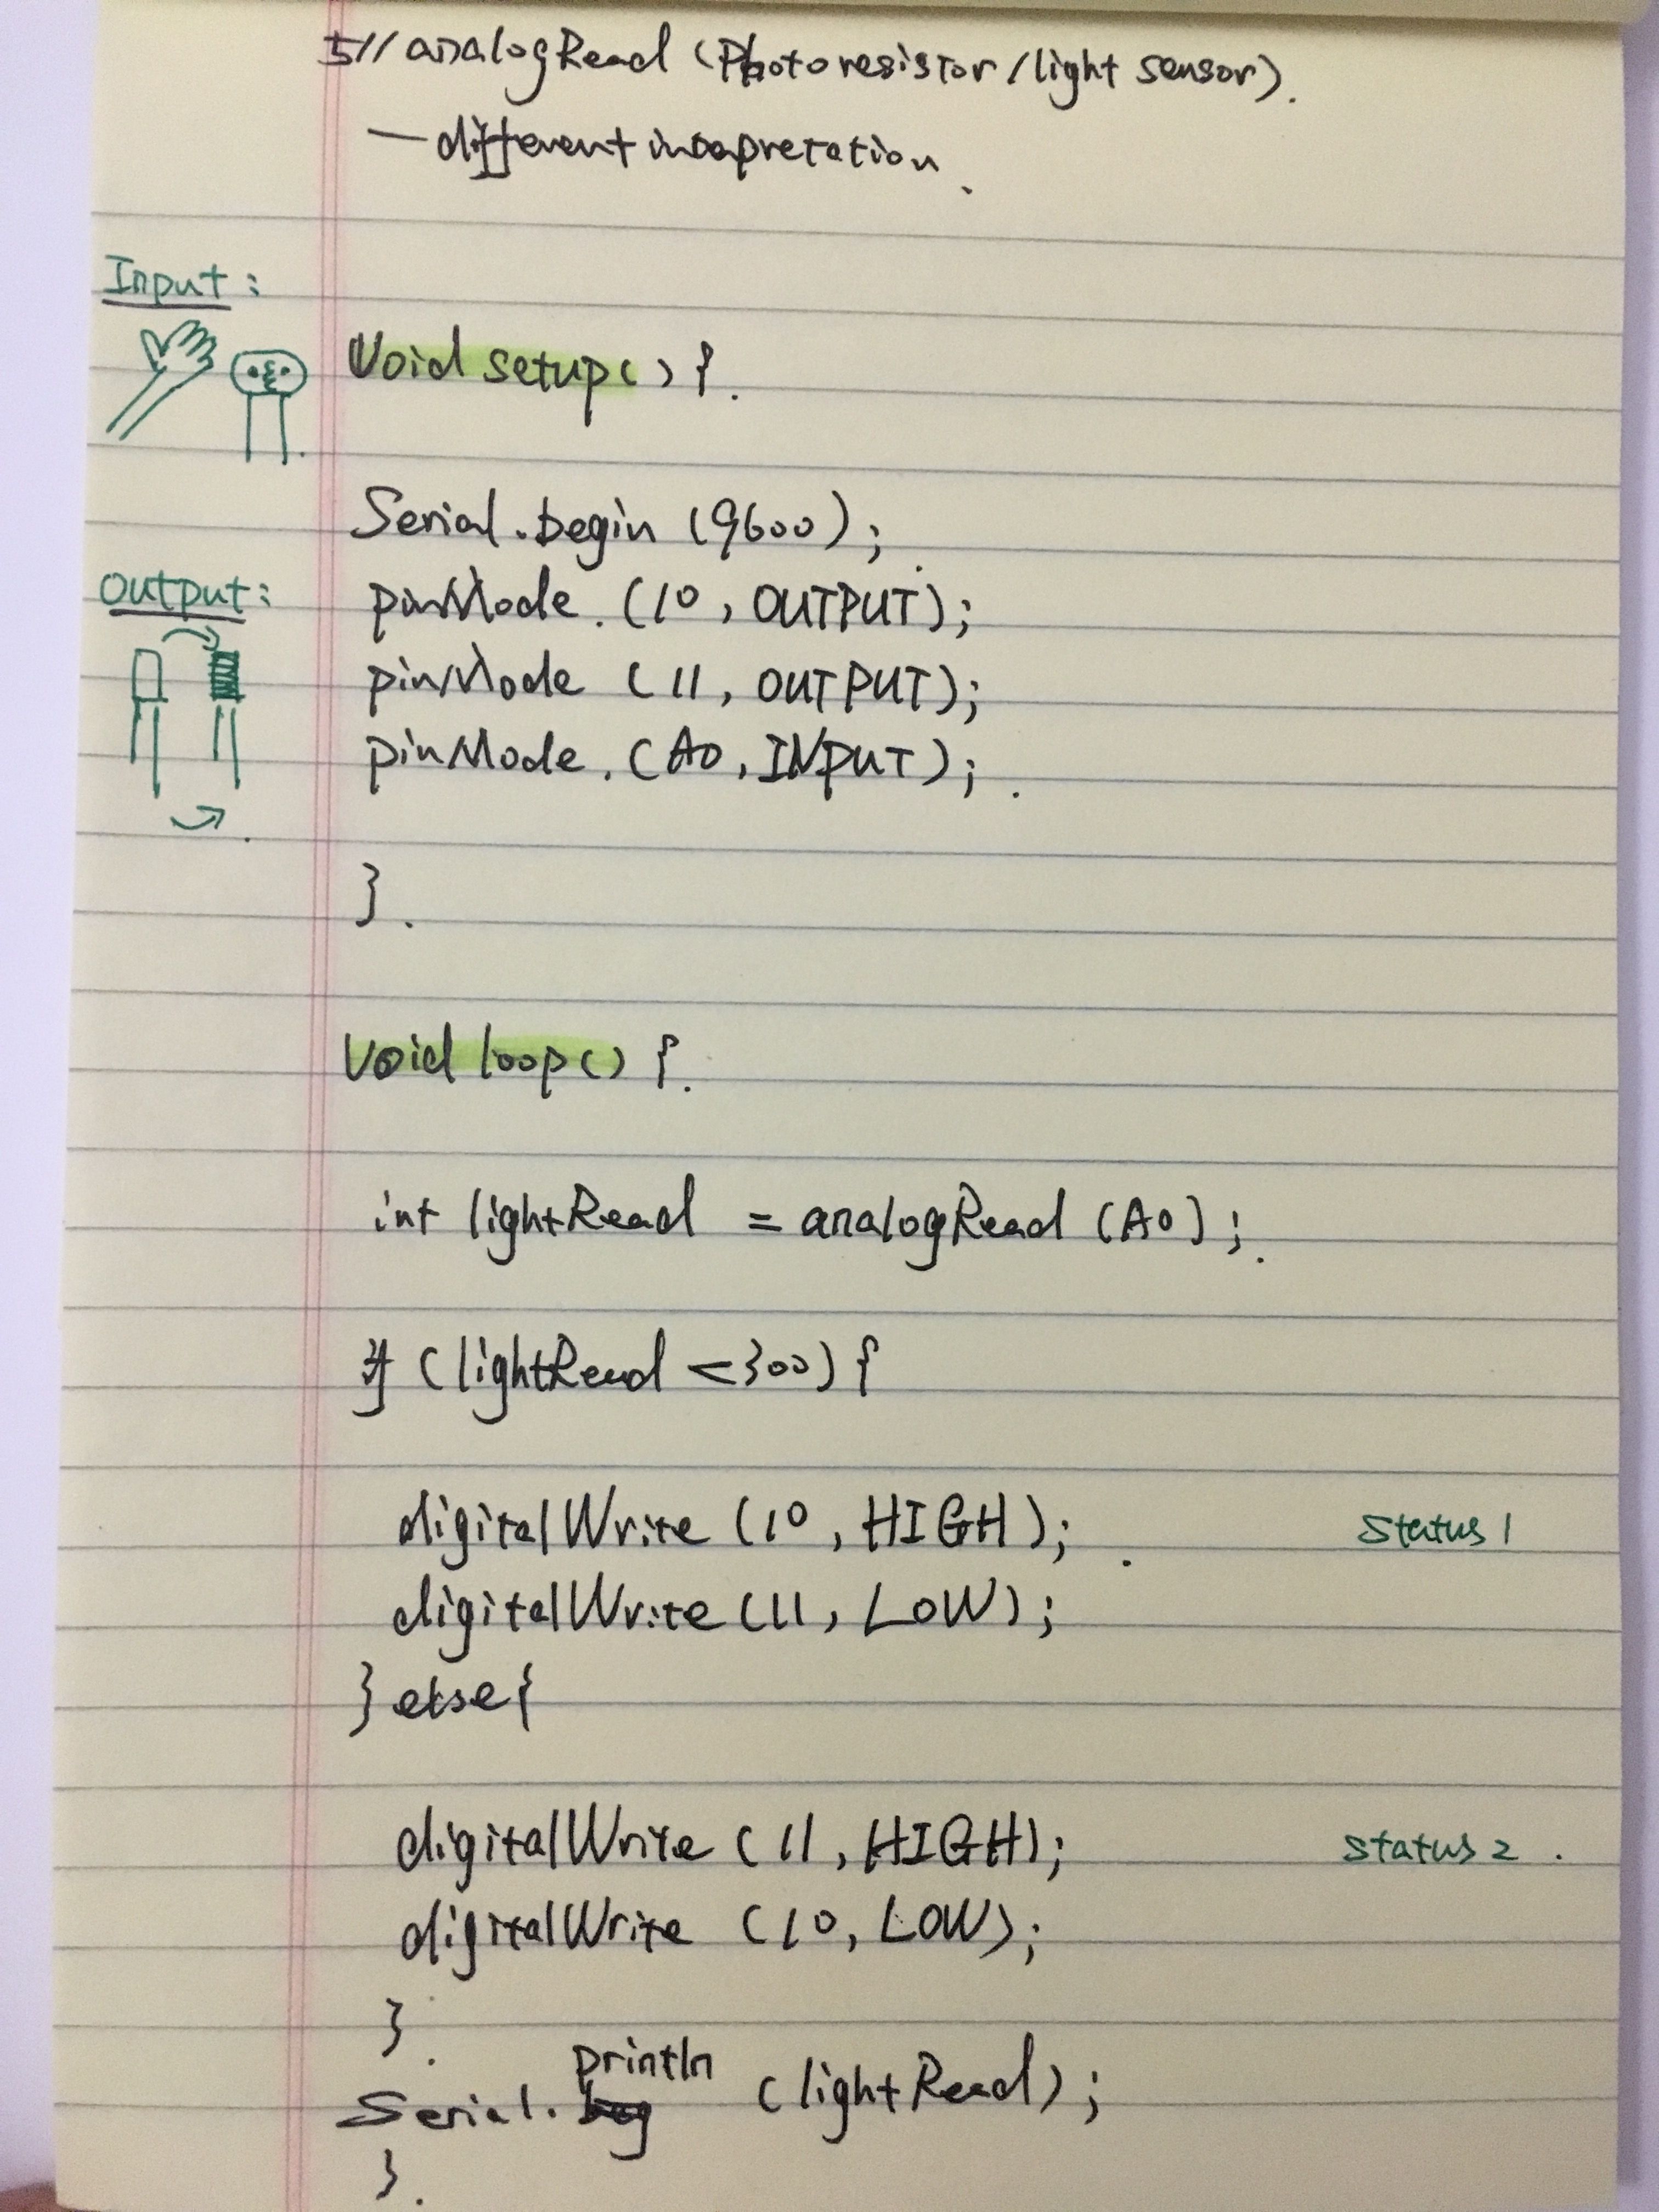 5// analogRead (Photoresistor/light sensor).
— different intepretation.
Input:
Void setup() {.
Serial.begin (9600);
Output:
pinMode. (10, OUTPUT);
pinMode (11, OUTPUT);
pinMode. (A0, INPUT);.
}.
Void loop() {.
int lightRead = analogRead (A0);.
if (lightRead <300) {
digitalWrite (10, HIGH);. Status 1
digitalWrite (11, LOW);
} else {
digitalWrite (11, HIGH); Status 2.
digitalWrite (10, LOW);
}.
Serial.println (lightRead);
}.